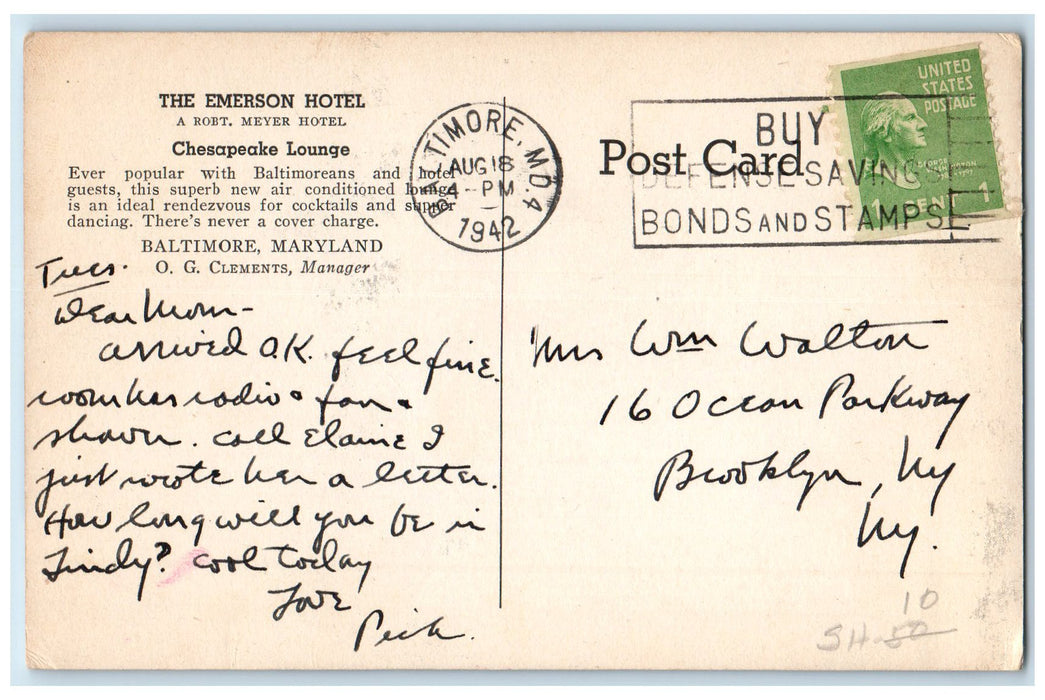 THE EMERSON HOTEL
A ROBT. MEYER HOTEL
Chesapeake Lounge
Ever popular with Baltimoreans and hotel
guests, this superb new air conditioned lounge
is an ideal rendezvous for cocktails and supper
dancing. There's never a cover charge.
BALTIMORE, MARYLAND
O. G. CLEMENTS, Manager
BALTIMORE, MD. 4
AUG 18
4 - PM
1942
Post Card
BUY
DEFENSE SAVINGS
BONDS AND STAMPS
UNITED
STATES
POSTAGE
GEORGE
WASHINGTON
1 CENT 1
Tues.
Dear Mom -
arrived O.K. feel fine.
room has radio & fan &
shower. call Elaine I
just wrote her a letter.
How long will you be in
? cool today
Love
Mrs Wm Walton
16 Ocean Parkway
Brooklyn, Ny
Ny.
10
SH-50